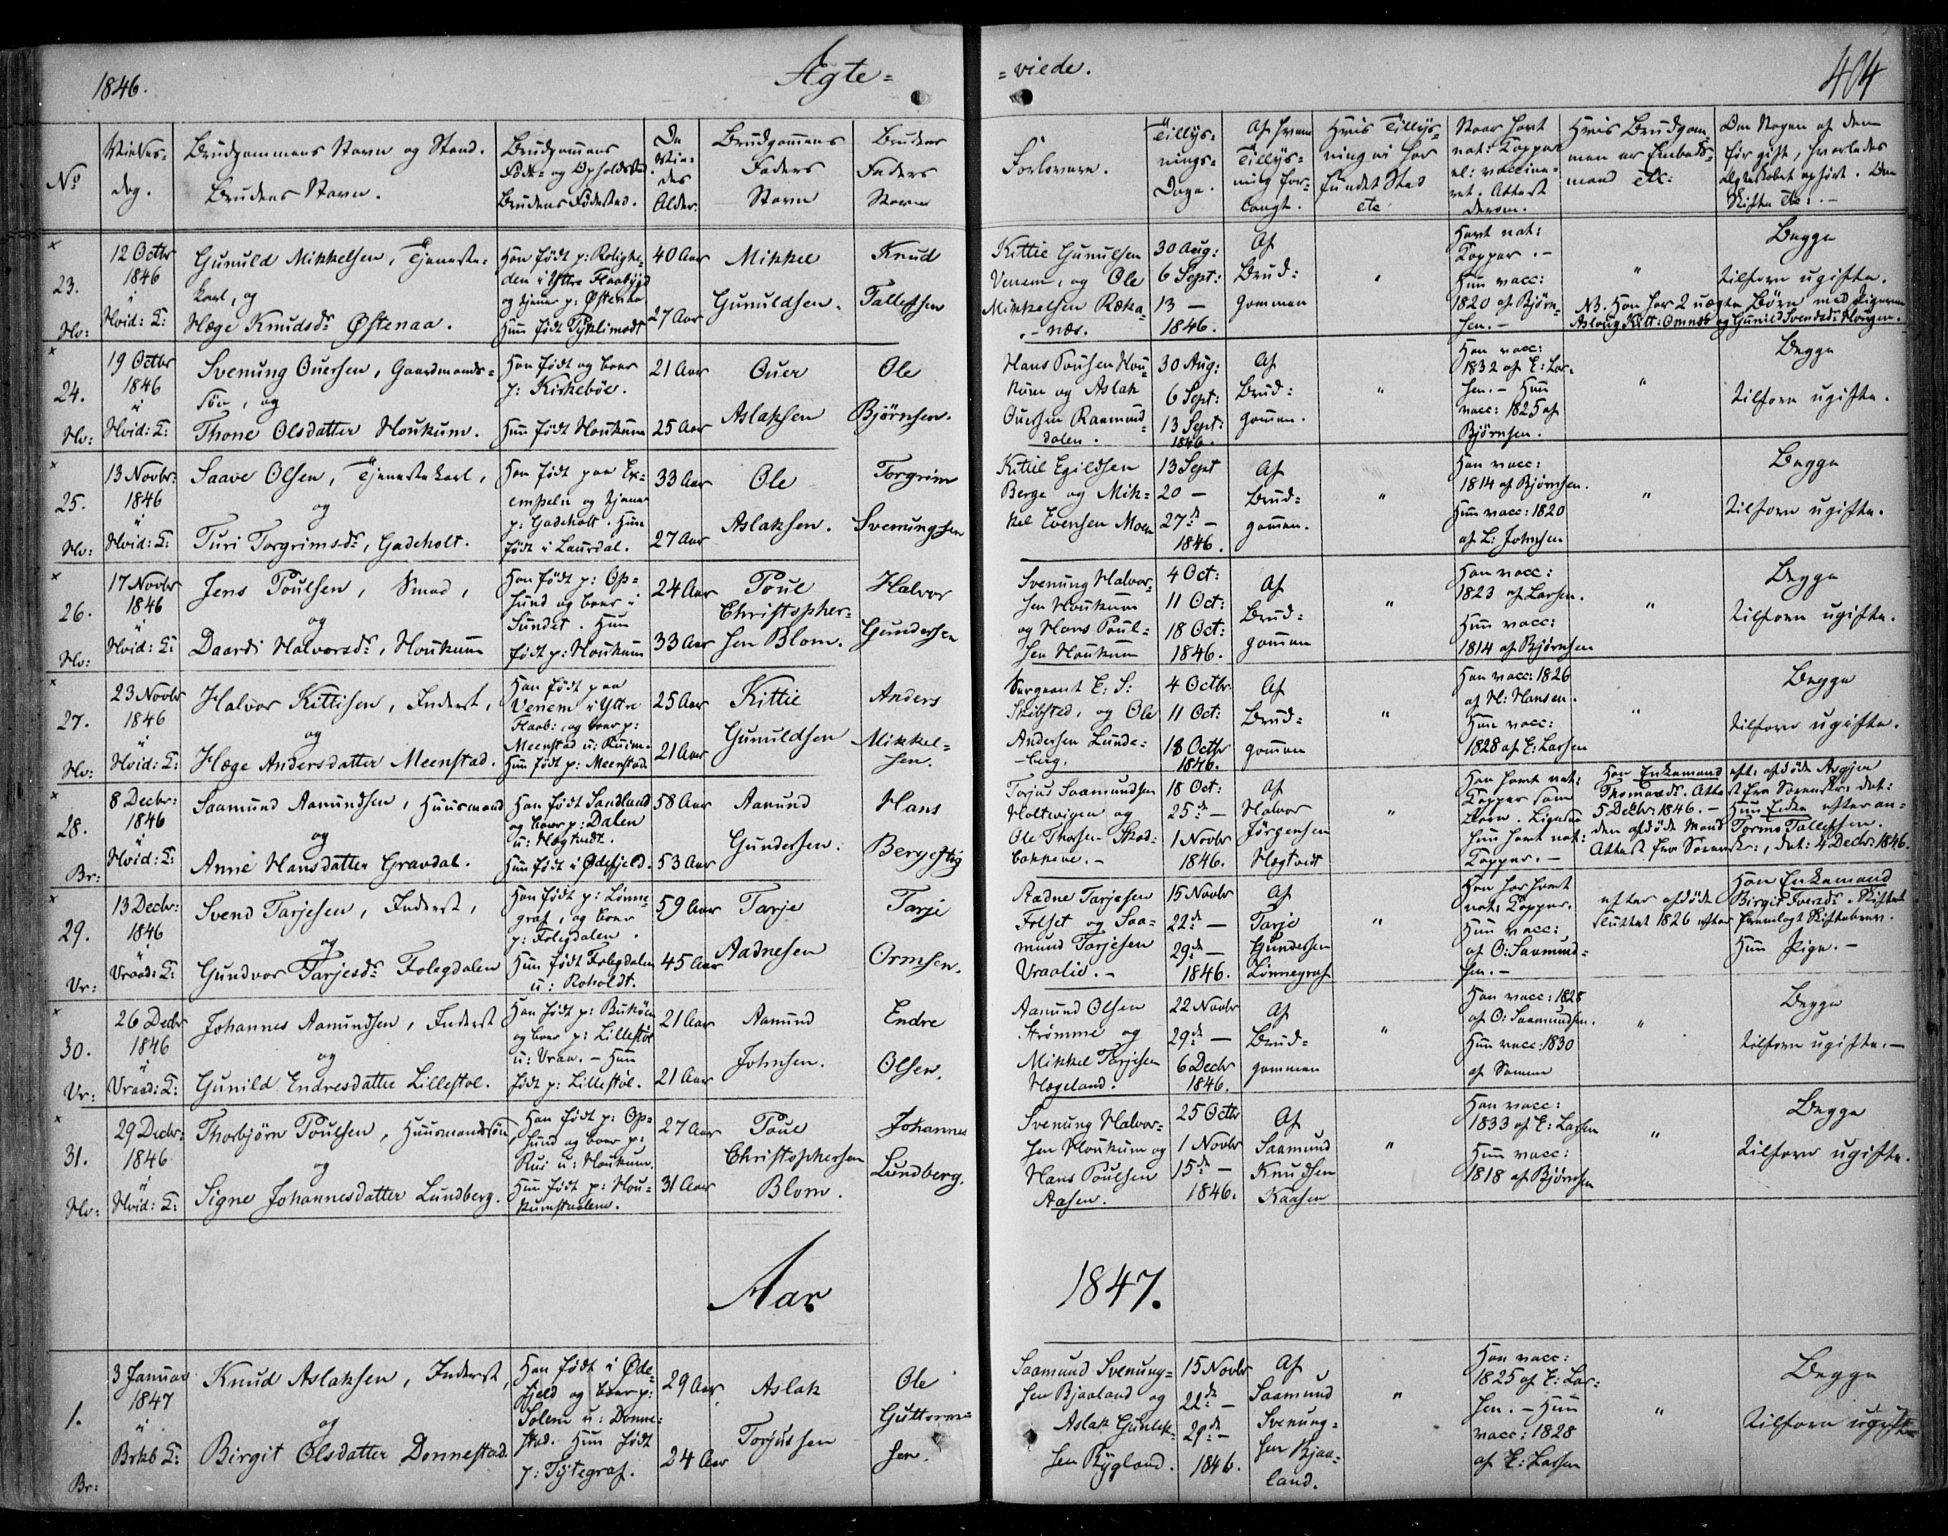 1846.
Ægte=
=viede.
404
No
Vielses-
dag.
Brudgommens Navn og Stand.
Brudens Navn.
Brudgommens
Føde- og Opholdssted
Brudens Fødested.
De
Vie-
des
Alder.
Brudgommens
Faders
Navn
Brudens
Faders
Navn
Forlovere.
Tillys-
nings-
Dage.
Af hvem
Tillys-
ning for-
langt.
Hvis Tillys-
ning ei har
fundet Sted
etc
Naar havt
nat: Kopper
el: vaccine-
ret. Attest
derom.
Hvis Brudgom-
men er Embeds-
mand etc:
Om Nogen af dem
før gift, hvorledes
Ægteskabet ophørt. Om
Skifte etc:
23.
Hv:
12 Octbr
1846
i
Hvid: K:
Gunuld Mikkelsen, Tjeneste-
karl, og
Hæge Knudsdr Østenaa.
Han født p: Rolighe-
den i Ytre Flaabygd
og tjener p: Østenaa
Hun født Tyklimodt
40 Aar
27 Aar
Mikkel
Gunuldsen.
Knud
Tallefsen
Kittil Gunulsen
Venem, og Ole
Mikkelsen Røka-
næs.
30 Aug:
6 Sept:
13 —
1846.
Af
Brud-
gommen
"
Havt nat:
Kopper. -
Hun vacc:
1820 af Bjørn-
sen. -
"
Begge
tilforn ugifte.
NB. Han har 2 uægte Børn med Pigerne
Aslaug Kitt: Omnæs og Gunild Svendsdr Haugen.
24.
Hv:
19 Octbr
1846
i
Hvid: K:
Svenung Ouersen, Gaardmands-
søn, og
Thone Olsdatter Haukum.
Han født og boer
p: Kirkebøe.
Hun født Haukum
21 Aar
25 Aar
Ouer
Aslaksen
Ole
Bjørnsen.
Hans Poulsen Hou-
kum og Aslak
Ouersen Raamund-
dalen.
30 Aug:
6 Sept:
13 Sept:
1846.
Af
Brud-
gommen.
"
Han vacc:
1832 af E: Lar-
sen. - Hun
vacc: 1825 af
Bjørnsen.
"
Begge
tilforn ugifte.
25.
Hv:
13 Novbr:
1846
i
Hvid: K:
Saave Olsen, Tjenestekarl,
og
Turi Torgrimsdr, Gadeholt.
Han født paa Ex-
empeln og tjener
p: Gadeholt. Hun
født i Laurdal.
33 Aar
27 Aar
Ole
Aslaksen.
Torgrim
Svenungsen
Kittil Egildsen
Berge og Mik-
kel Evensen Moen
13 Sept
20 —
27de —
1846.
Af
Brud-
gommen.
"
Han vacc:
1814 af Bjørnsen.
Hun vacc: 1820
af L: Johnsen
"
Begge
tilforn ugifte.
26.
Hv:
17 Novbr
1846
i
Hvid: K:
Jens Poulsen, Smed,
og
Daardi Halvorsdr, Houkum
Han født p: Op-
sund og boer i
Sundet. Hun
født p: Houkum
24 Aar
33 Aar
Poul
Christopher-
sen Blom.
Halvor
Gundersen
Svenung Halvor-
sen Houkum
og Hans Poul-
sen Houkum
4 Oct:
11 Oct:
18 Oct:
1846.
Af
Brud-
gommen
"
Han vacc:
1823 af Larsen.
Hun vacc:
1814 af Bjørnsen
"
Begge
tilforn ugifte.
27.
Hv:
23 Novbr
1846
i
Hvid: K:
Halvor Kittilsen, Inderst,
og
Hæge Andersdatter Meenstad.
Han født paa
Venem i Ytre
Flaab:, og boer p:
Meenstad u: Ruim-
Hun født p: Meenstad
25 Aar
21 Aar
Kittil
Gunuldsen
Anders
Mikkel-
sen.
Sergeant E: S:
Skibsted, og Ole
Andersen Lunde-
bug.
4 Octbr
11 Oct:
18 Octbr
1846.
Af
Brud-
gommen
"
Han vacc: 1826
af H: Hansen.
Hun vacc:
1828 af E: Larsen
"
Begge
tilforn ugifte.
28.
Br:
8 Decbr:
1846
i
Hvid: K:
Saamund Aamundsen, Huusmand
og
Anne Hansdatter Gravdal.
Han født Sandland
og boer p: Dalen
u: Hægtvedt.
Hun født i Ødefjeld.
58 Aar
53 Aar
Aamund
Gundersen.
Hans
Bergeftig
Torjus Saamundsen
Holtvigen og
Ole Thorsen Skod-
bakkene. -
18 Oct:
25de —
1 Novbr
1846.
Af
Halvor
Jørgensen
Hægtvedt
"
Han havt nat:
Kopper som
Barn. Ligesaa
Hun havt nat:
Kopper. -
Han Enkemand eft: afdøde Asgjer
Thomasdr. Attest fra Sorenskr: dat:
5 Decbr: 1846. - Hun Enke efter an-
den afdøde Mand Tormo Tallefsen.
Attest fra Sorenskr:, dat: 4 Decbr: 1846.
29.
Vr:
13 Decbr:
1846
i
Vraad: K:
Svend Tarjesen, Inderst,
og
Gundvor Tarjesdr Folegdalen
Han født p: Lønne-
graf, og boer
p: Folegdalen.
Hun født Folegdalen
u: Roholdt.
59 Aar
45 Aar
Tarje
Aadnesen
Tarje
Ormsen.
Aadne Tarjesen
Felset og Saa-
mund Tarjesen
Vraalid. -
15 Novbr
22de —
29de —
1846.
Af
Tarje
Gundersen
Lønnegraf
"
Han har havt
nat: Kopper.
Hun vacc:
af O: Saamund-
sen. -
Han Enkemand
efter afdøde Birgit Iversdr. Skiftet
sluttet 1826 efter fremlagt Skiftebrev.
Hun Pige. -
30.
Vr:
26 Decbr
1846
i
Vraad: K:
Johannes Aamundsen, Inderst
og
Gunild Endresdatter Lillestøl.
Han født p: Bukøen
og boer p: Lillestøl
u: Vraa. - Hun
født p: Lillestøl.
21 Aar
21 Aar
Aamund
Johnsen.
Endre
Olsen.
Aamund Olsen
Strømme og
Mikkel Tarjesen
Hægeland.
22 Novbr
29de —
6 Decbr
1846.
Af
Brud-
gommen
"
Han vacc: 1828
af O: Saamundsen.
Hun vacc: 1830
af Samme
"
Begge
tilforn ugifte. -
31.
Hv:
29 Decbr:
1846
i
Hvid: K:
Thorbjørn Poulsen, Huusmandssøn
og
Signe Johannesdatter Lundberg.
Han født p: Op-
sund og boer p:
Rui u: Houkum.
Hun født p: Hou-
kumstaalen.
27 Aar
31 Aar
Poul
Christophersen
Blom.
Johannes
Lundberg.
Svenung Halvor-
sen Houkum og
Hans Poulsen
Aasen.
25 Octbr
1 Novbr
15de —
1846.
Af
Saamund
Knudsen
Kaasen
"
Han vacc:
1833 af E: Larsen
Hun vacc:
1818 af Bjørnsen
"
Begge
tilforn ugifte.
Aar
1847.
1.
Br:
3 Januar
1847
i
Brkb K:
Knud Aslaksen, Inderst,
og
Birgit Olsdatter Donnestad.
Han født i Øde-
fjeld og boer p:
Solem u: Donne-
stad. Hun født
p: Tytegraf.
29 Aar
24 Aar
Aslak
Torjussen
Ole
Guttorm-
sen.
Saamund Svenung-
sen Bjaaland og
Aslak Gunlek-
sen Rygland.
15 Novbr
22de —
29de —
1846.
Af
Saamund
Svenung-
sen Bjaa-
land.
"
Han vacc:
1825 af E: Lar-
sen. - Hun
vacc: 1828
af E: Larsen
"
Begge
tilforn ugifte